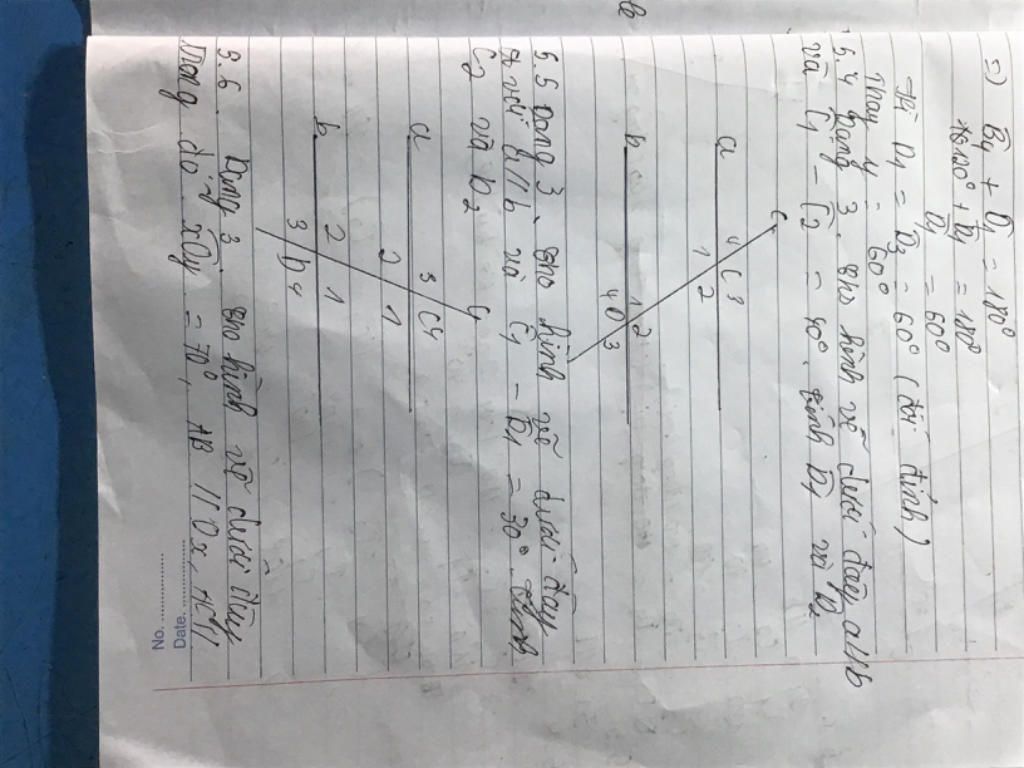 =) D̂4 + D̂1 = 180°
120° + D̂1 = 180°
D̂1 = 60°
D1 = D̂3 = 60° (đối đỉnh)
Thay y = 60°
5.4 Dạng 3. Cho hình vẽ dưới đây a//b
và Ĉ1 - Ĉ2 = 40°. Tính D̂1 và D̂2
c
a
4 C 3
1 2
b
1 2
4 D 3
5.5 Dạng 3. Cho hình vẽ dưới đây
với a//b và Ĉ1 - D̂1 = 30°. Tính
C2 và D2
a
3 C 4
2 1
b
2 1
3 D 4
5.6. Dạng 3. Cho hình vẽ dưới đây
Trong đó xOy = 70°, AB // Ox, AC //
No.
Date.